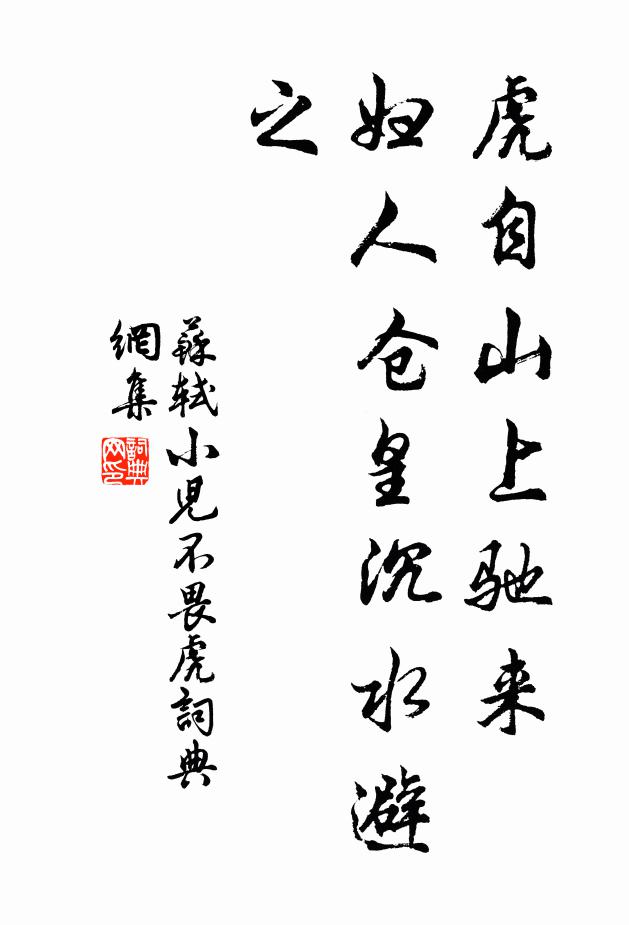 虎自山上驰来
妇人仓皇沉水避
之
蘇轼小児不畏虎詞典
網集
詞典
网印